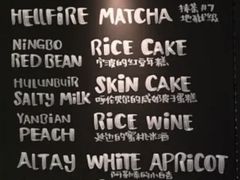 HELLFIRE MATCHA 抹茶 #7
地狱级
NINGBO RICE CAKE
RED BEAN 宁波的红豆年糕
HULUNBUIR SKIN CAKE
SALTY MILK 呼伦贝尔的咸奶皮子蛋糕
YANBIAN RICE WINE
PEACH 延边的蜜桃米酒
ALTAY WHITE APRICOT
阿勒泰的小白杏